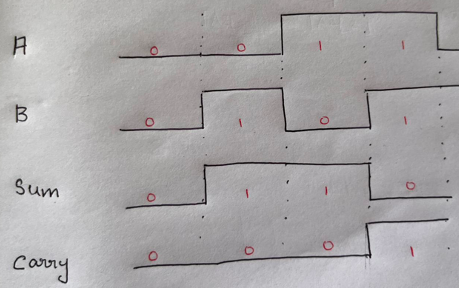 A 0 0 1 1
B 0 1 0 1
Sum 0 1 1 0
Carry 0 0 0 1